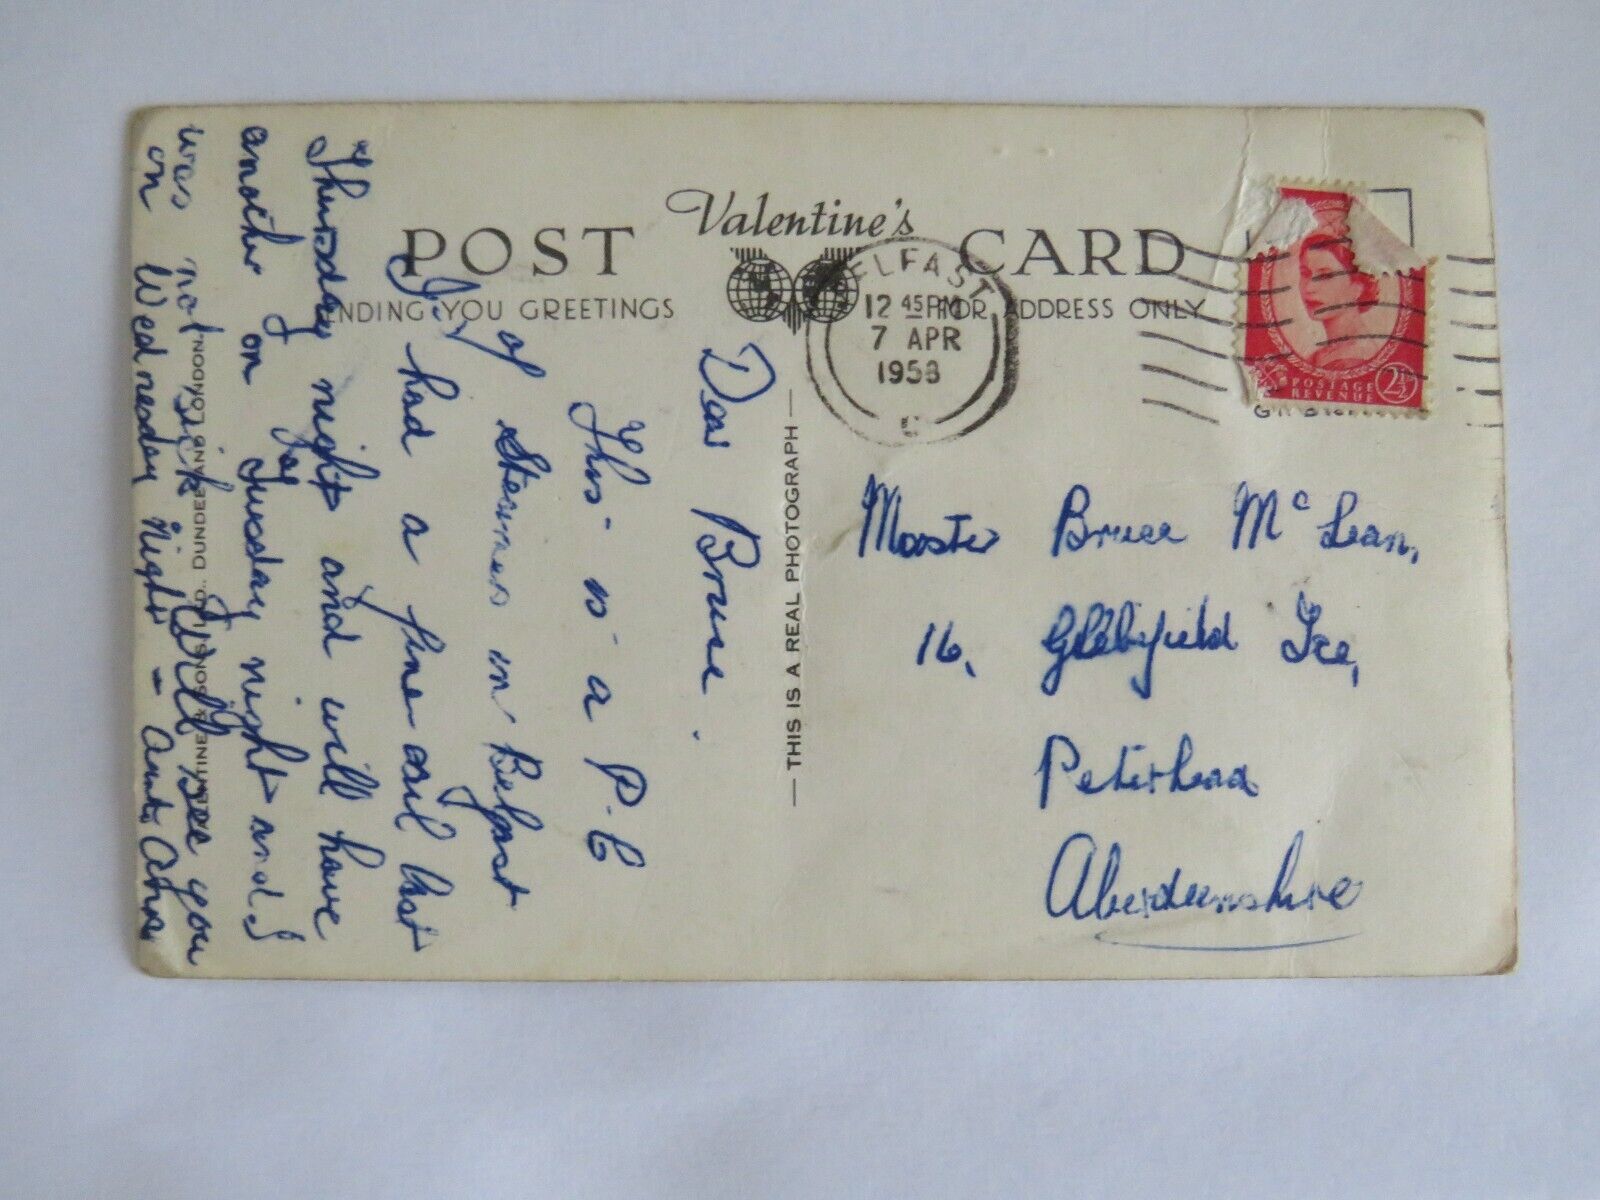 Valentine's
POST CARD
SENDING YOU GREETINGS
FOR ADDRESS ONLY
BELFAST
12 45 PM
7 APR
1958
POSTAGE
REVENUE
2½
— THIS IS A REAL PHOTOGRAPH —
VALENTINE & SONS, LTD., DUNDEE AND LONDON.
Dear Bruce.
This is a P.C
of Steamer in Belfast
I had a fine sail last
Thursday night and will have
another on Tuesday night and I
was not sick. Will see you
on Wednesday Night –
Master Bruce McLean,
16, Glebefield Tce,
Peterhead
Aberdeenshire